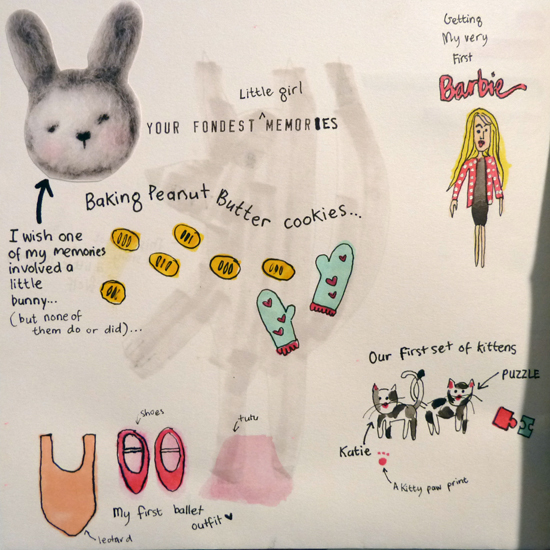 Getting
My very
First
Barbie
Little girl
YOUR FONDEST ^ MEMORIES
Baking Peanut Butter cookies...
I wish one
of my memories
involved a
little
bunny...
(but none of
them do or did)...
Our first set of kittens
PUZZLE
Katie
A kitty paw print
shoes
tutu
My first ballet
outfit
leotard